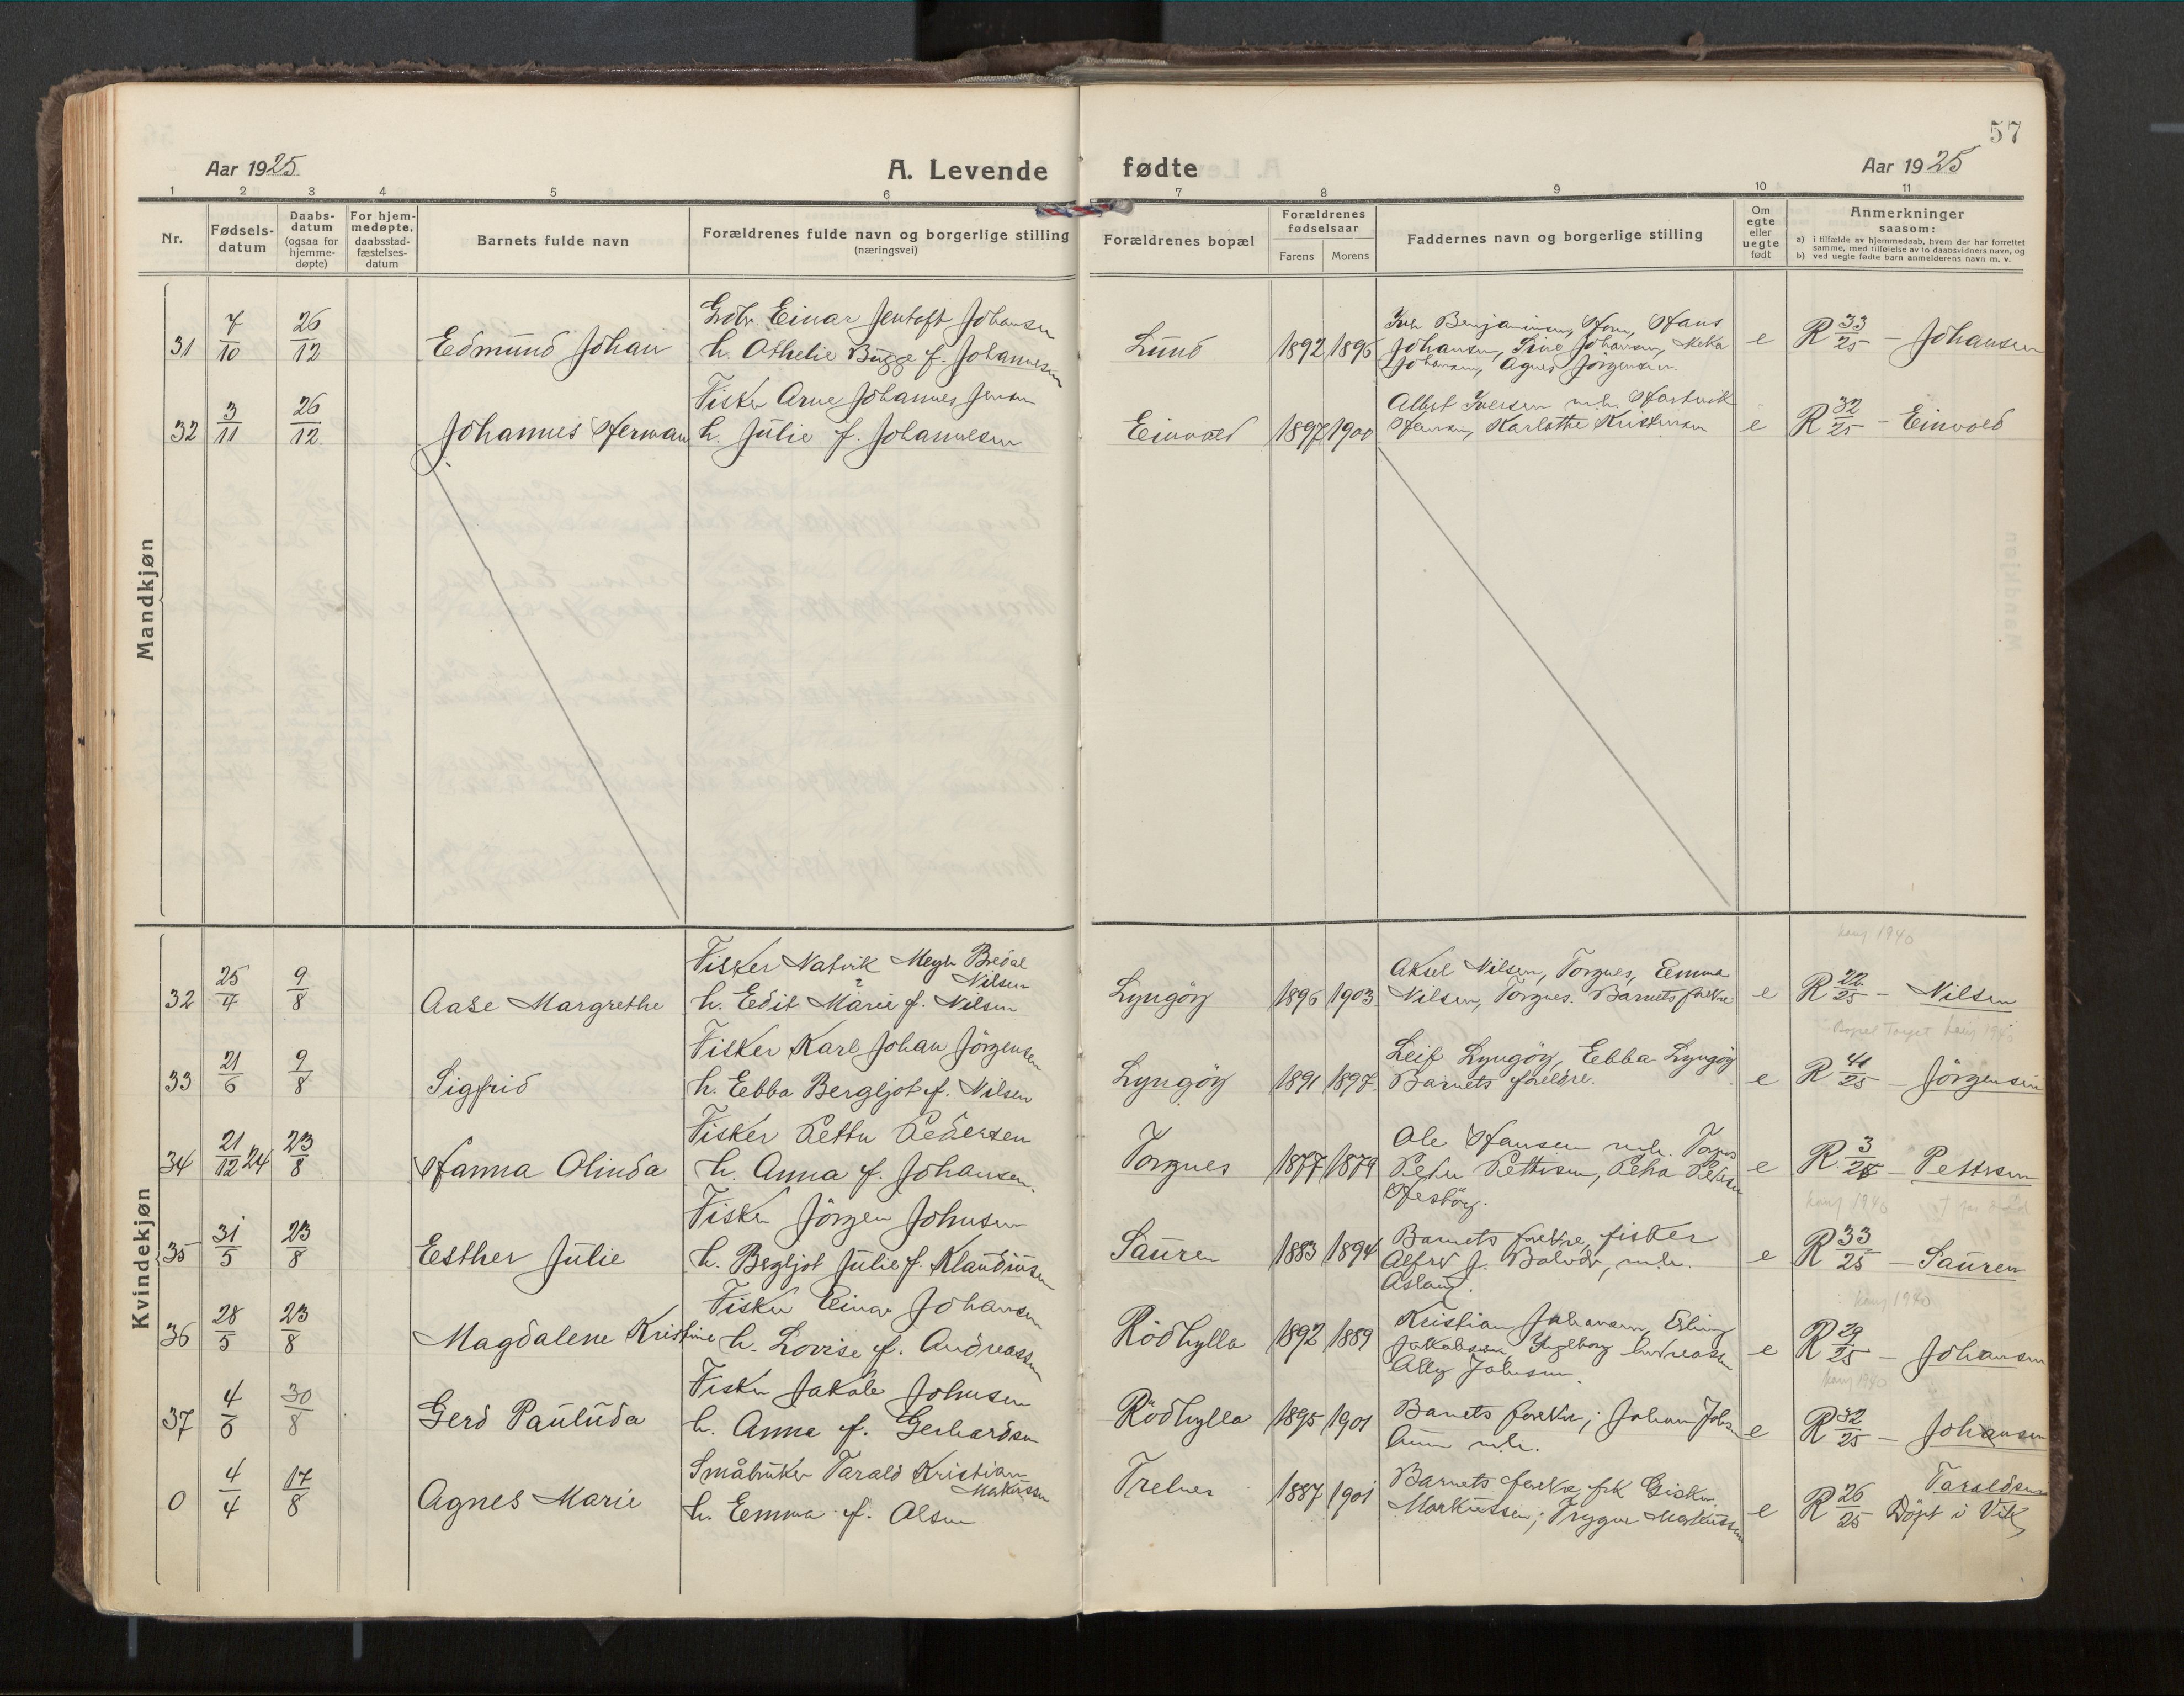 57
Aar 1925
A. Levende fødte
Aar 1925
1 2 3 4 5 6 7 8 9 10 11
Nr.
Fødsels-
datum
Daabs-
datum
(ogsaa for
hjemme-
døpte)
For hjem-
medøpte,
daabsstad-
fæstelses-
datum
Barnets fulde navn
Forældrenes fulde navn og borgerlige stilling
(næringsvei)
Forældrenes bopæl
Forældrenes
fødselsaar
Farens Morens
Faddernes navn og borgerlige stilling
Om
egte
eller
uegte
født
Anmerkninger
saasom:
a) i tilfælde av hjemmedaab, hvem der har forrettet
samme, med tilføielse av to daabsvidners navn, og
b) ved uegte fødte barn anmelderens navn m. v.
Mandkjøn
31 7/10 26/12 Edmund Johan
Einar Jentoft Johansen
h. Othelie Bugge f. Johannesen
Lund 1892 1896
Benjaminsen, Hans
Johansen, Johansen,
Johansen, Agnes Jörgensen.
e R 33/25 – Johansen
32 3/11 26/12 Johannes Herman
Fisker Arne Johannes Jensen
h. Julie f. Johannesen
Einvold 1897 1900
Albert Iversen m.h.
Hansen, Karlothe Kristensen
e R 32/25 – Einvold
Kvindekjøn
32 25/4 9/8 Aase Margrethe
Fisker Natvik Bredal
Nilsen
h. Edit Marie f. Nilsen
Lyngöy 1896 1903
Aksel Nilsen, Torgnes, Emma
Nilsen, Torgnes. Barnets foreldre
konf 1940
e R 22/25 – Nilsen
33 21/6 9/8 Sigfrid
Fisker Karl Johan Jörgensen
h. Ebba Bergljot f. Nilsen
Lyngöy 1891 1897
Leif Lyngöy, Ebba Lyngöy
Barnets foreldre.
e R 41/25 – Jörgensen
34 21/12 24 23/8 Hanna Olinda
Fisker Petter Pedersen
h. Anna f. Johansen.
Torgnes 1877 1879
Ole Hansen m.h. Torgnes
Peder Pettersen, Petra
e R 3/25 – Pettersen
konf 1940
35 31/5 23/8 Esther Julie
Fisker Jörgen Johnsen
h. Bergljot Julie f. Klaudiusen
Sauren 1883 1894
Barnets foreldre, fisker
Alfred J. m.h.
e R 33/25 – Sauren
konf 1940
36 28/5 23/8 Magdalene Kristine
Fisker Einar Johansen
h. Lovise f. Andreassen
Rödhylla 1892 1889
Kristian Johansen, Erling
Jakobsen Ingeborg Andreassen
Johnsen.
e R 29/25 – Johansen
konf 1940
37 4/6 30/8 Gerd Pauluda
Fisker Jakob Johnsen
h. Anna f. Gerhardsen
Rödhylla 1895 1901
Barnets foreldre; Johan
m.h.
e R 32/25 – Johansen
0 4/4 17/8 Agnes Marie
Småbruker Tarald Kristian
Markussen
h. Emma f. Olsen
Trelnes 1887 1901
Barnets foreldre, frk
Markussen; Trygve Markussen
e R 26/25 Taraldsen
Döpt i Vik